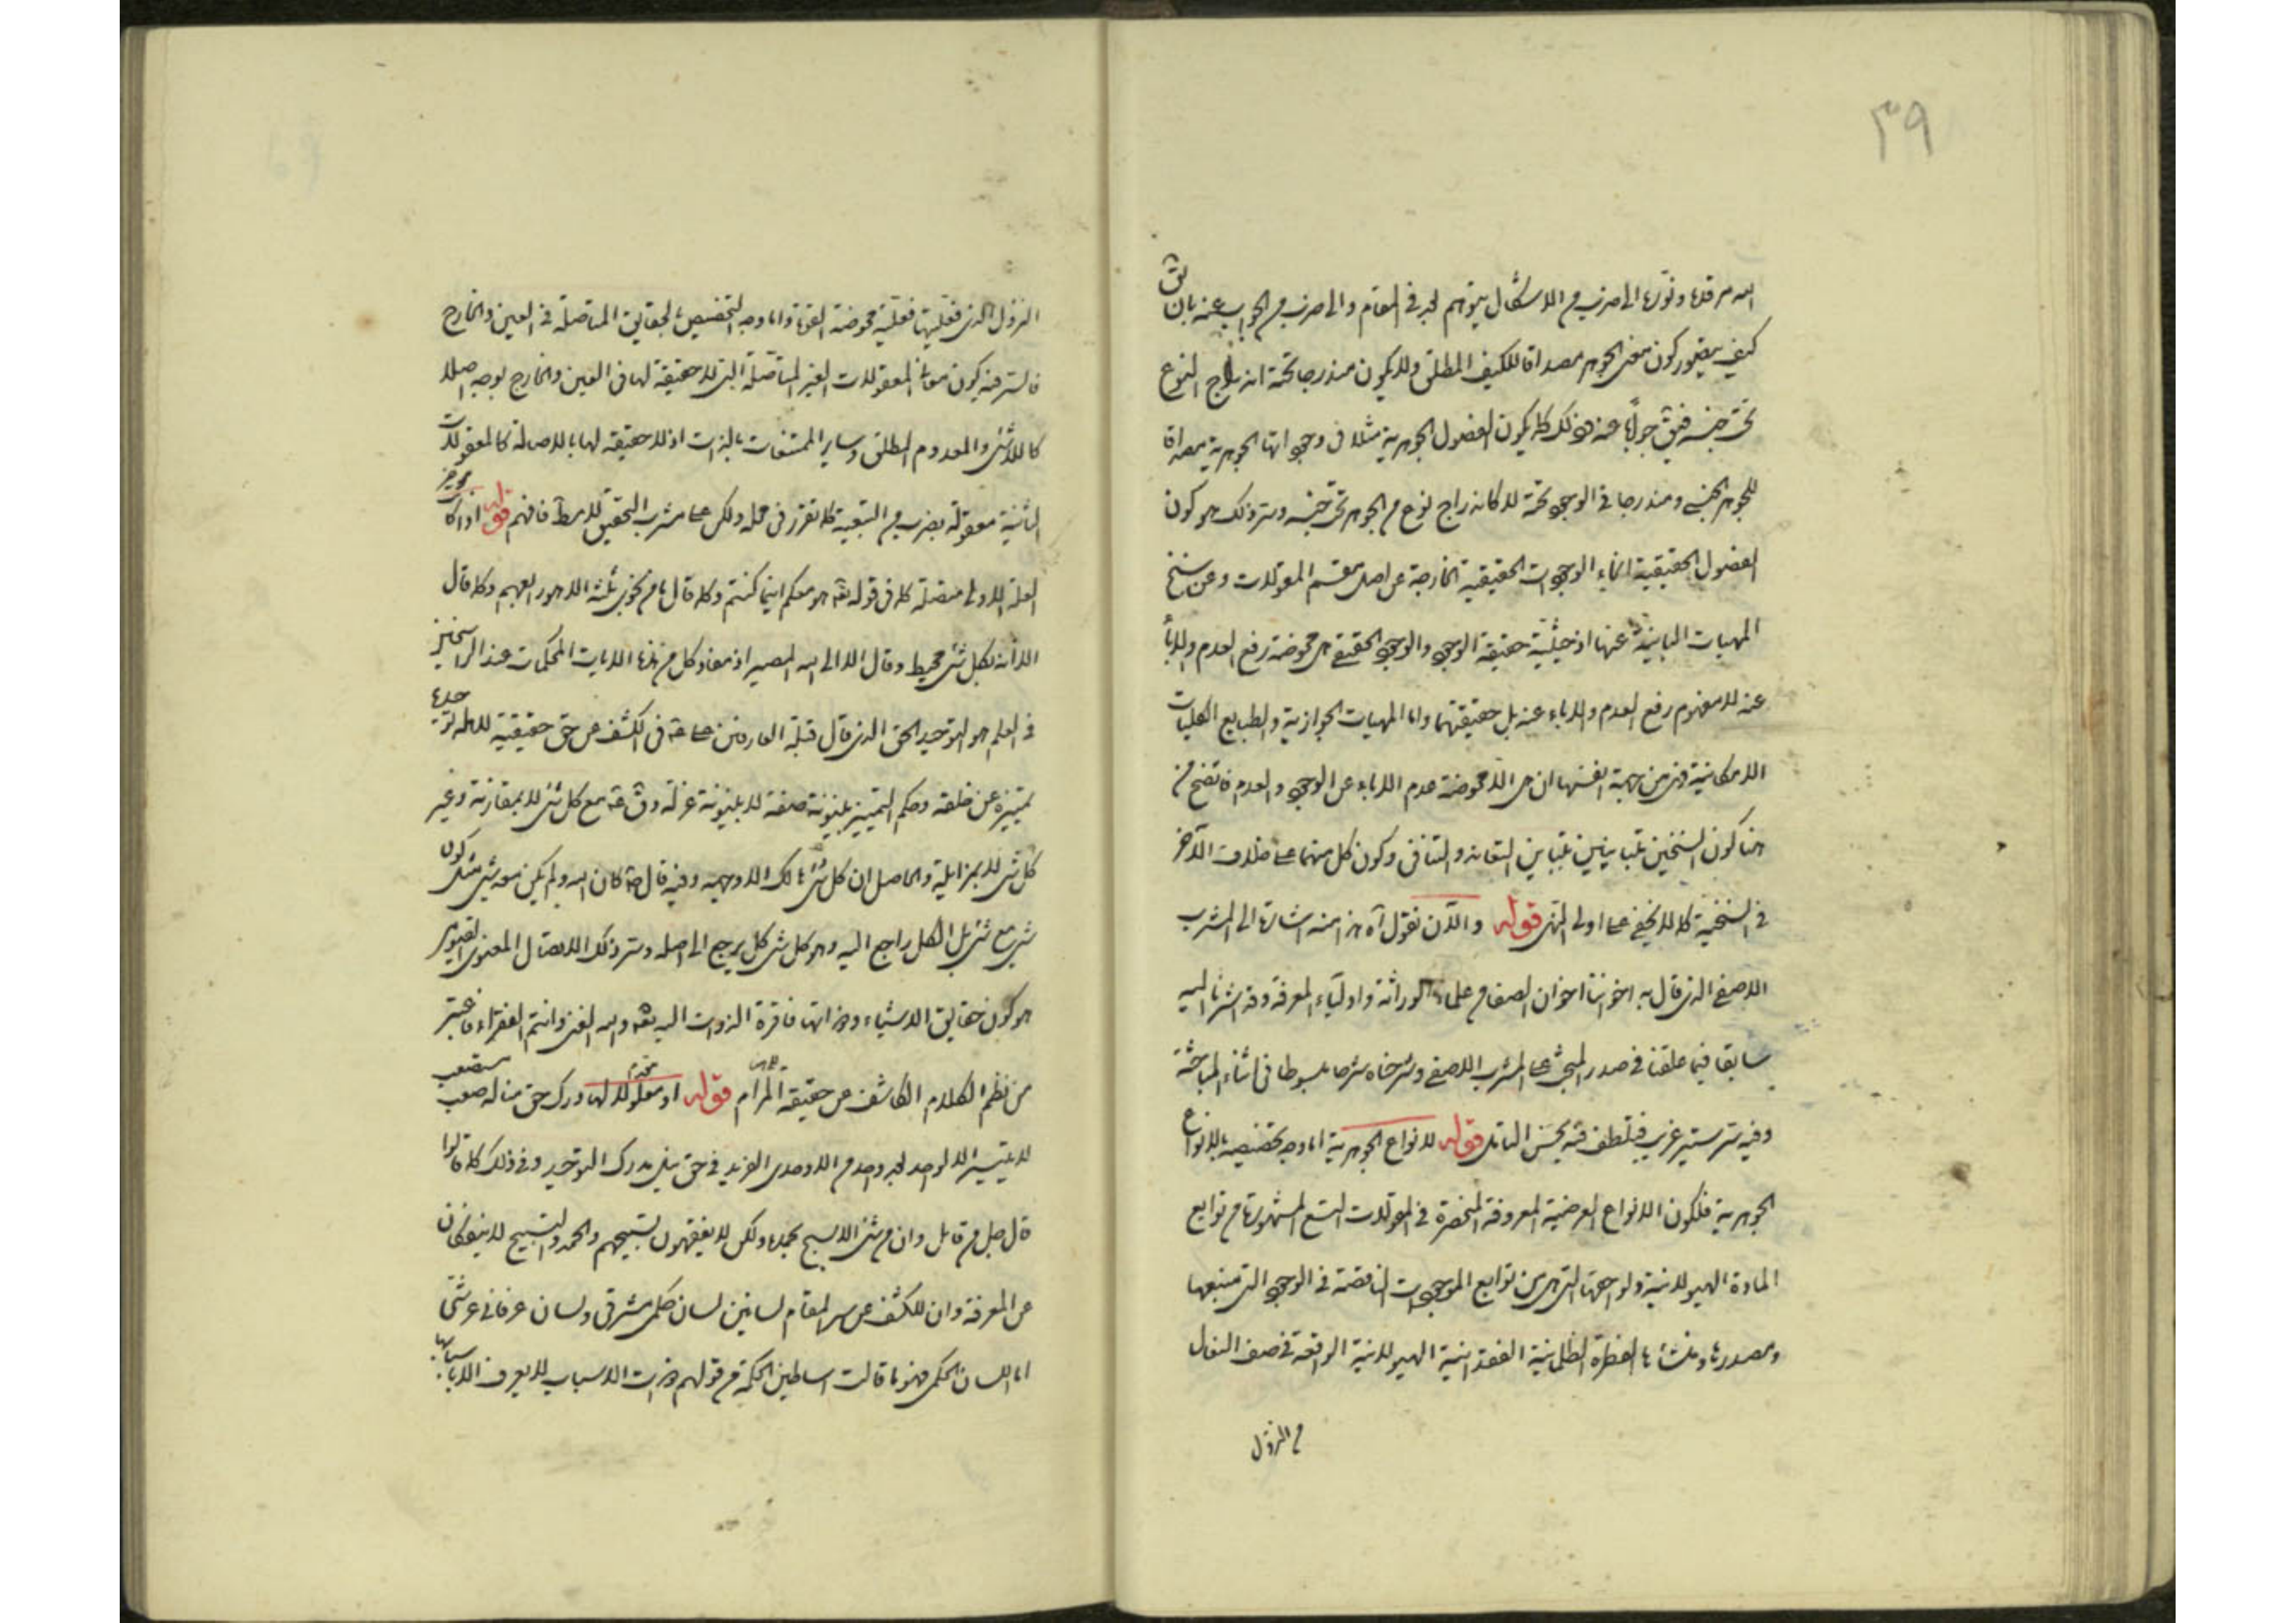 ٣٩
الله مرقده ونوره الى ضرب من الاشكال يتوهم لحد فى المقام والى ضرب من الجواب عنه بان يق
كيف يتصور كون معنى الجوهر مصداقا للكيف المطلق ولا يكون مندرجا تحته اندراج النوع
تحت جنسه فيق جوابا عنه وذلك كما يكون الفصول الجوهرية مثلا فى وجوداتها الجوهرية مصداقا
للجوهر الجنسى ومندرجا فى الوجود تحته لا كاندراج نوع من الجوهر تحت جنسه وسر ذلك هو كون
الفصول الحقيقية انحاء الوجودات الحقيقية الخارجة عن اصل مقسم المقولات وعن سنخ
المهيات المباينة عنها اذ حيثية حقيقة الوجود والوجود الحقيقى هى محوضة رفع العدم والاباء
عنه لا مفهوم رفع العدم والاباء عنه بل حقيقتهما واما المهيات الجوازية والطبايع الكليات
الامكانية فهى من جهة انفسها ان هى الا محوضة عدم الاباء عن الوجود والعدم فاتضح من
هنا كون السنخين متباينين تباين التعاند والتنافى وكون كل منهما على خلاف الآخر
فى السنخية كما لا يخفى على اولى النهى قوله والآن نقول آه هذا منه اشارة الى المشرب
الاصفى الذى قال به اخواننا اخوان الصفا من علماء الوراثة واولياء المعرفة وقد اشرنا اليه
سابقا فيما علقنا فى صدر المبحث على المشرب الاصفى وشرحناه شرحا مبسوطا فى اثناء المباحثة
وفيه سر ستير غريب فتلطف فيه بحسن التامل قوله للانواع الجوهرية اما وجه تخصيصه بالانواع
الجوهرية فلكون الانواع العرضية المعروفة المنحصرة فى المقولات التسع المشهورة من توابع
المادة الهيولانية ولواحقها التى هى من توابع الموجودات الناقصة فى الوجود التى منبعها
ومصدرها ومنشأها الفطرة الظلمانية الفقدانية الهيولانية الواقعة فى صف النعال
من النزول
النزول الذى فعليتها فعلية محوضة القوة واما وجه التخصيص بالحقايق المتاصلة فى العين والخارج
فالسر فيه كون معانى المعقولات الغير المتاصلة التى لا حقيقة لها فى العين والخارج بوجه اصلا
كاللاشئ والمعدوم المطلق وساير الممتنعات بالذات اذ لا حقيقة لها بالاصالة كالمعقولات
الثانية معقولة بضرب من التبعية كما تقرر فى محله ولكن على مشرب التحقيق لا مطلقا فافهم قوله اذا كا
العلة الاولى متصلة كما فى قوله تعه هو معكم اينما كنتم وكما قال ما من نجوى ثلثة الا هو رابعهم وكما قال
الا انه بكل شئ محيط وقال الا الى الله المصير اذ مفاد كل من هذه الايات المحكمات عند الراسخين
فى العلم هو التوحيد الحق الذى قال قبلة العارفين على ع فى الكشف عن حق حقيقته للكله توحيده
تمييزه عن خلقه وحكم التمييز بينونة صفة لا بينونة عزلة وقال ع مع كل شئ لا بمقارنة وغير
كل شئ لا بمزايلة والحاصل ان كل شئ هالك الا وجهه وفيه قال ع كان الله ولم يكن معه شئ مثل كون
شئ مع شئ بل الكل راجع اليه وهو كل شئ كل يرجع الى اصله وسر ذلك الاتصال المعنوى القيومى
هو كون حقايق الاشياء وذواتها فاقرة الذوات اليه تعه والله الغنى وانتم الفقراء فاعتبر
من نظم الكلام الكاشف عن حقيقة المرام قوله او معلولا لها درك حق مناله صعب مستصعب
لا يتيسر الا لواحد بعد واحد من الاوحدى الفريد فى حق نيل مدرك التوحيد وفى ذلك كما قالوا
قال جل من قائل وان من شئ الا يسبح بحمده ولكن لا تفقهون تسبيحهم والحمد والتسبيح لا ينفكان
عن المعرفة وان للكشف عن سر المقام لسانين لسان حكمى مشرقى ولسان عرفانى عرشى
اما اللسان الحكمى فهو ما قالت اساطين الحكمة من قولهم ذوات الاسباب لا يعرف الا باسبابها